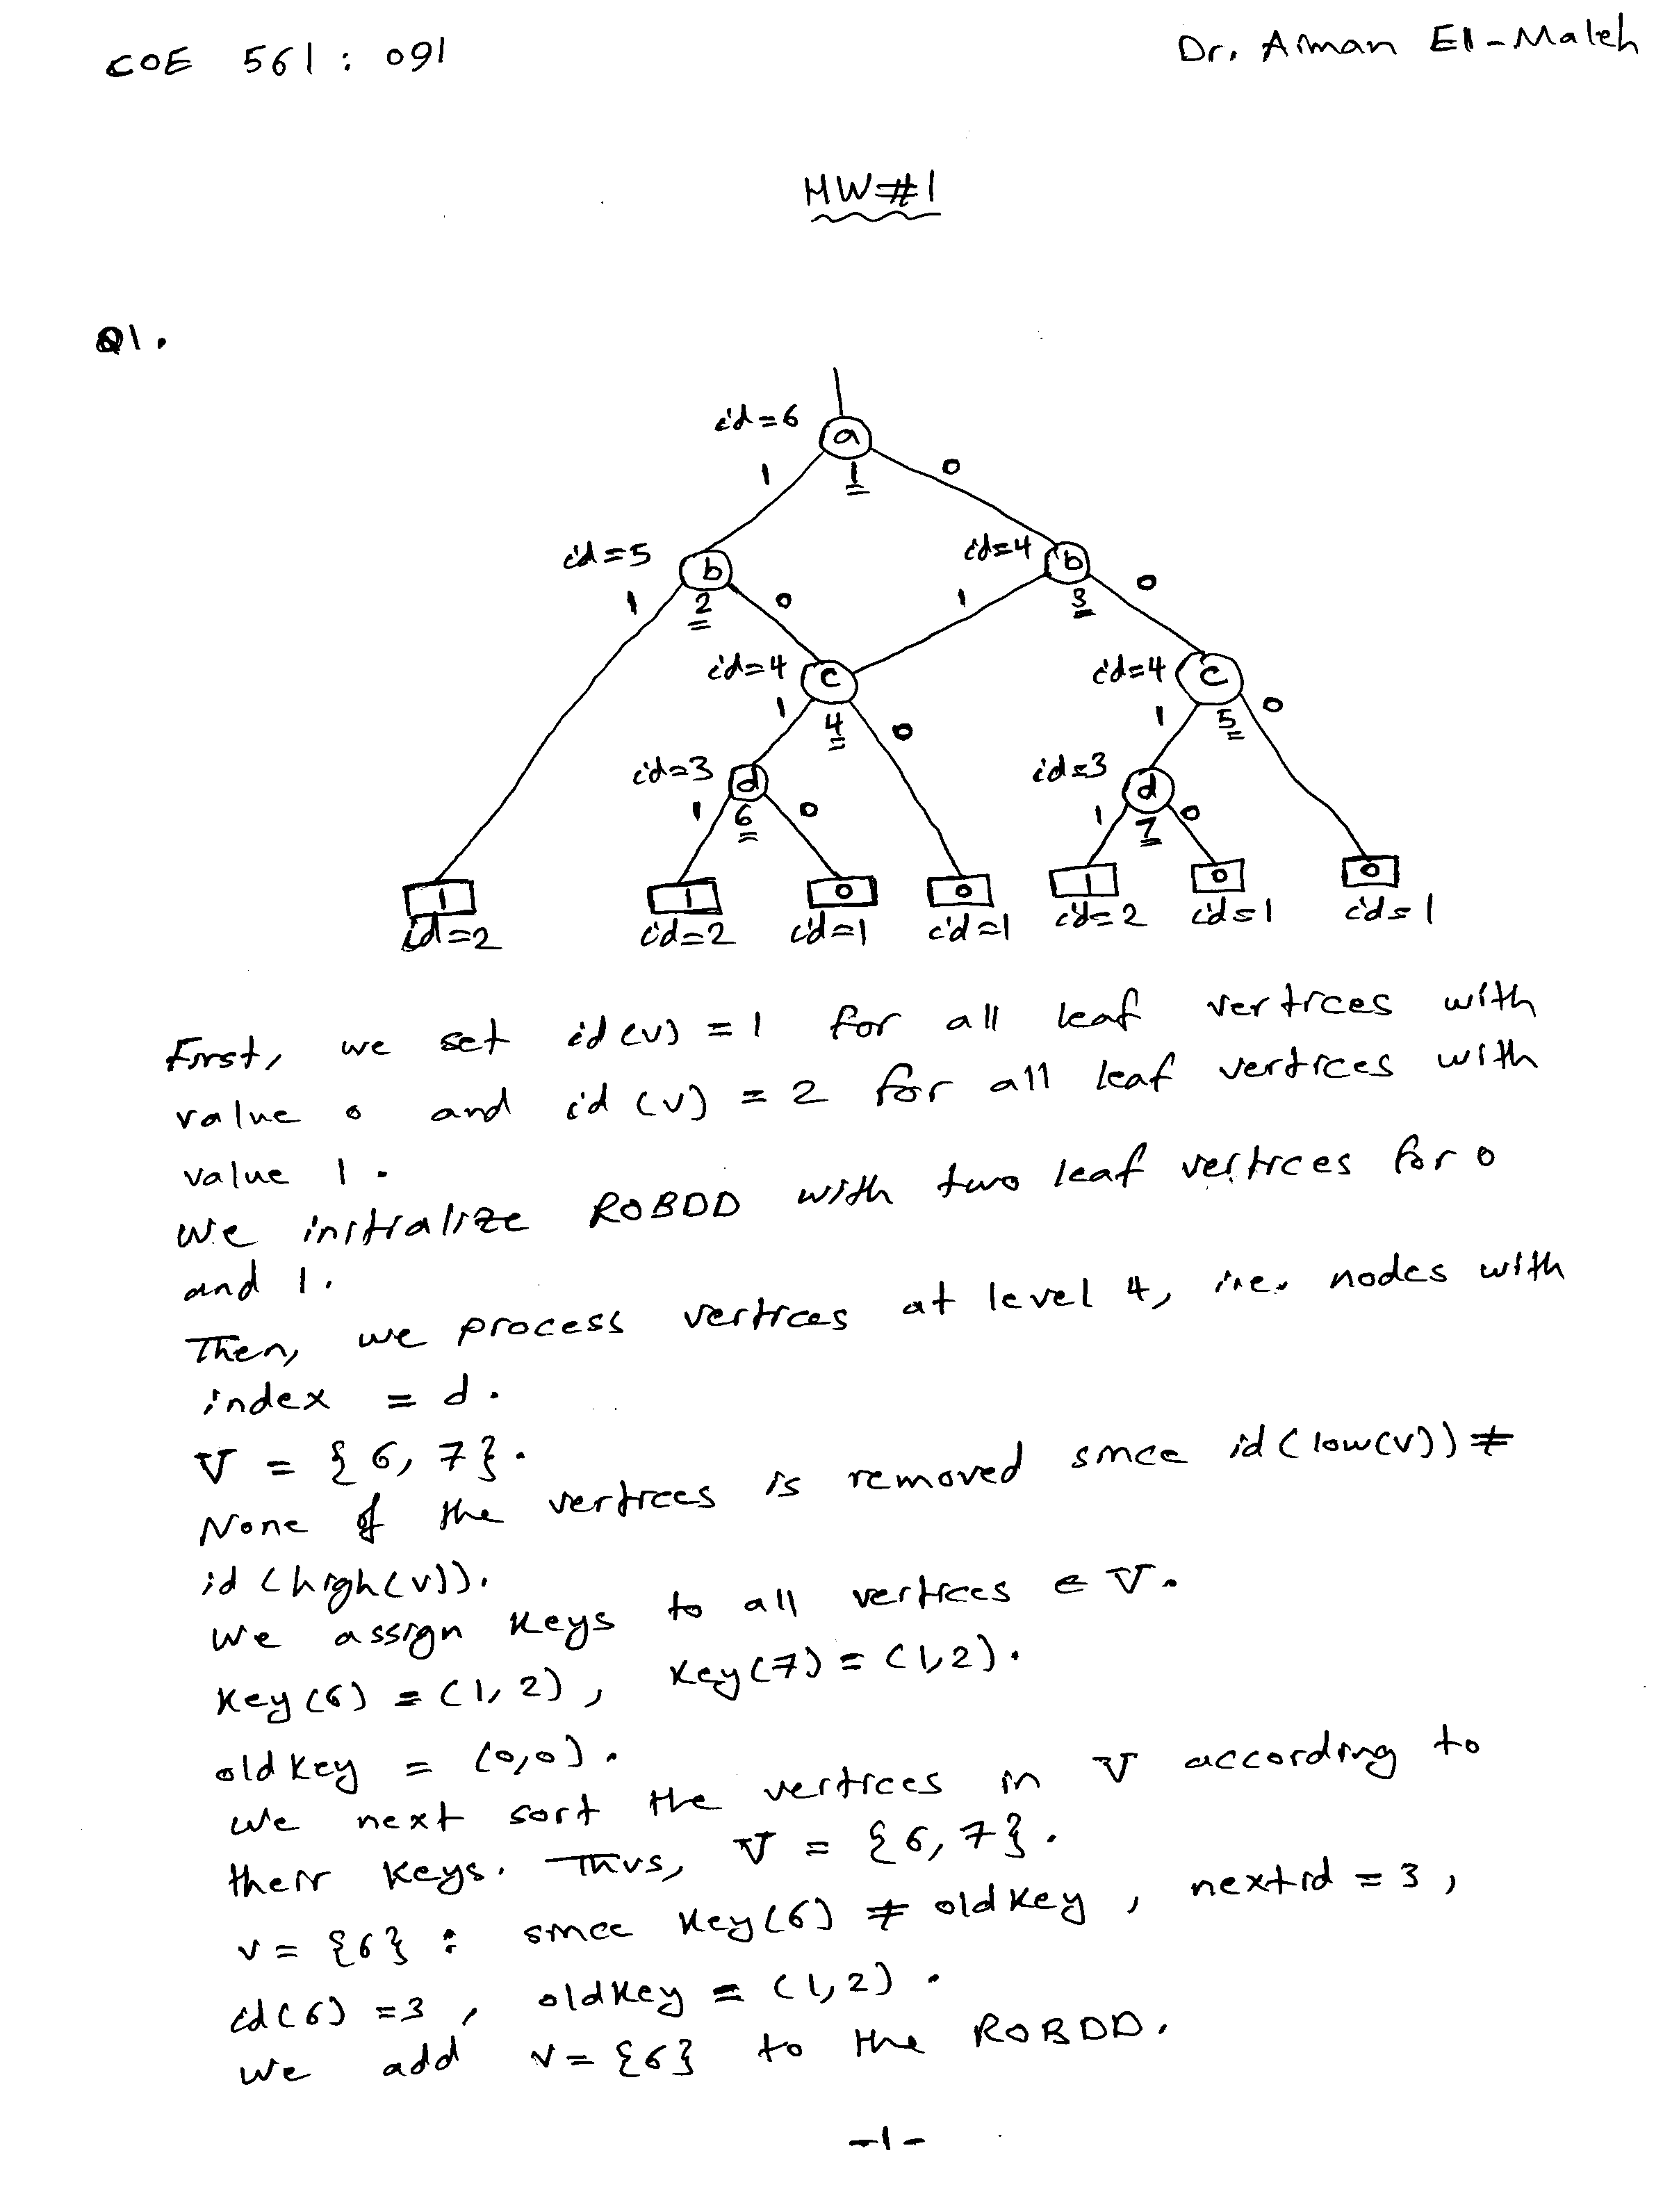 COE 561 : 091
Dr. Aiman El-Maleh
HW#1
Q1.
id=6
a
1
1
0
id=5
b
2
id=4
b
3
1
0
1
0
id=4
c
4
id=4
c
5
1
0
1
0
id=3
d
6
id=3
d
7
1
0
1
0
1
1
0
0
1
0
0
id=2
id=2
id=1
id=1
id=2
id=1
id=1
First, we set id(v) = 1 for all leaf vertices with
value 0 and id(v) = 2 for all leaf vertices with
value 1.
We initialize ROBDD with two leaf vertices for 0
and 1.
Then, we process vertices at level 4, i.e. nodes with
index = d.
V = {6, 7}.
None of the vertices is removed since id(low(v)) ≠
id(high(v)).
We assign keys to all vertices ∈ V.
Key(6) = (1, 2), Key(7) = (1,2).
oldkey = (0,0).
We next sort the vertices in V according to
their keys. Thus, V = {6, 7}.
v = {6} : since Key(6) ≠ oldkey, nextid = 3,
id(6) = 3, oldkey = (1,2).
We add v = {6} to the ROBDD.
-1-